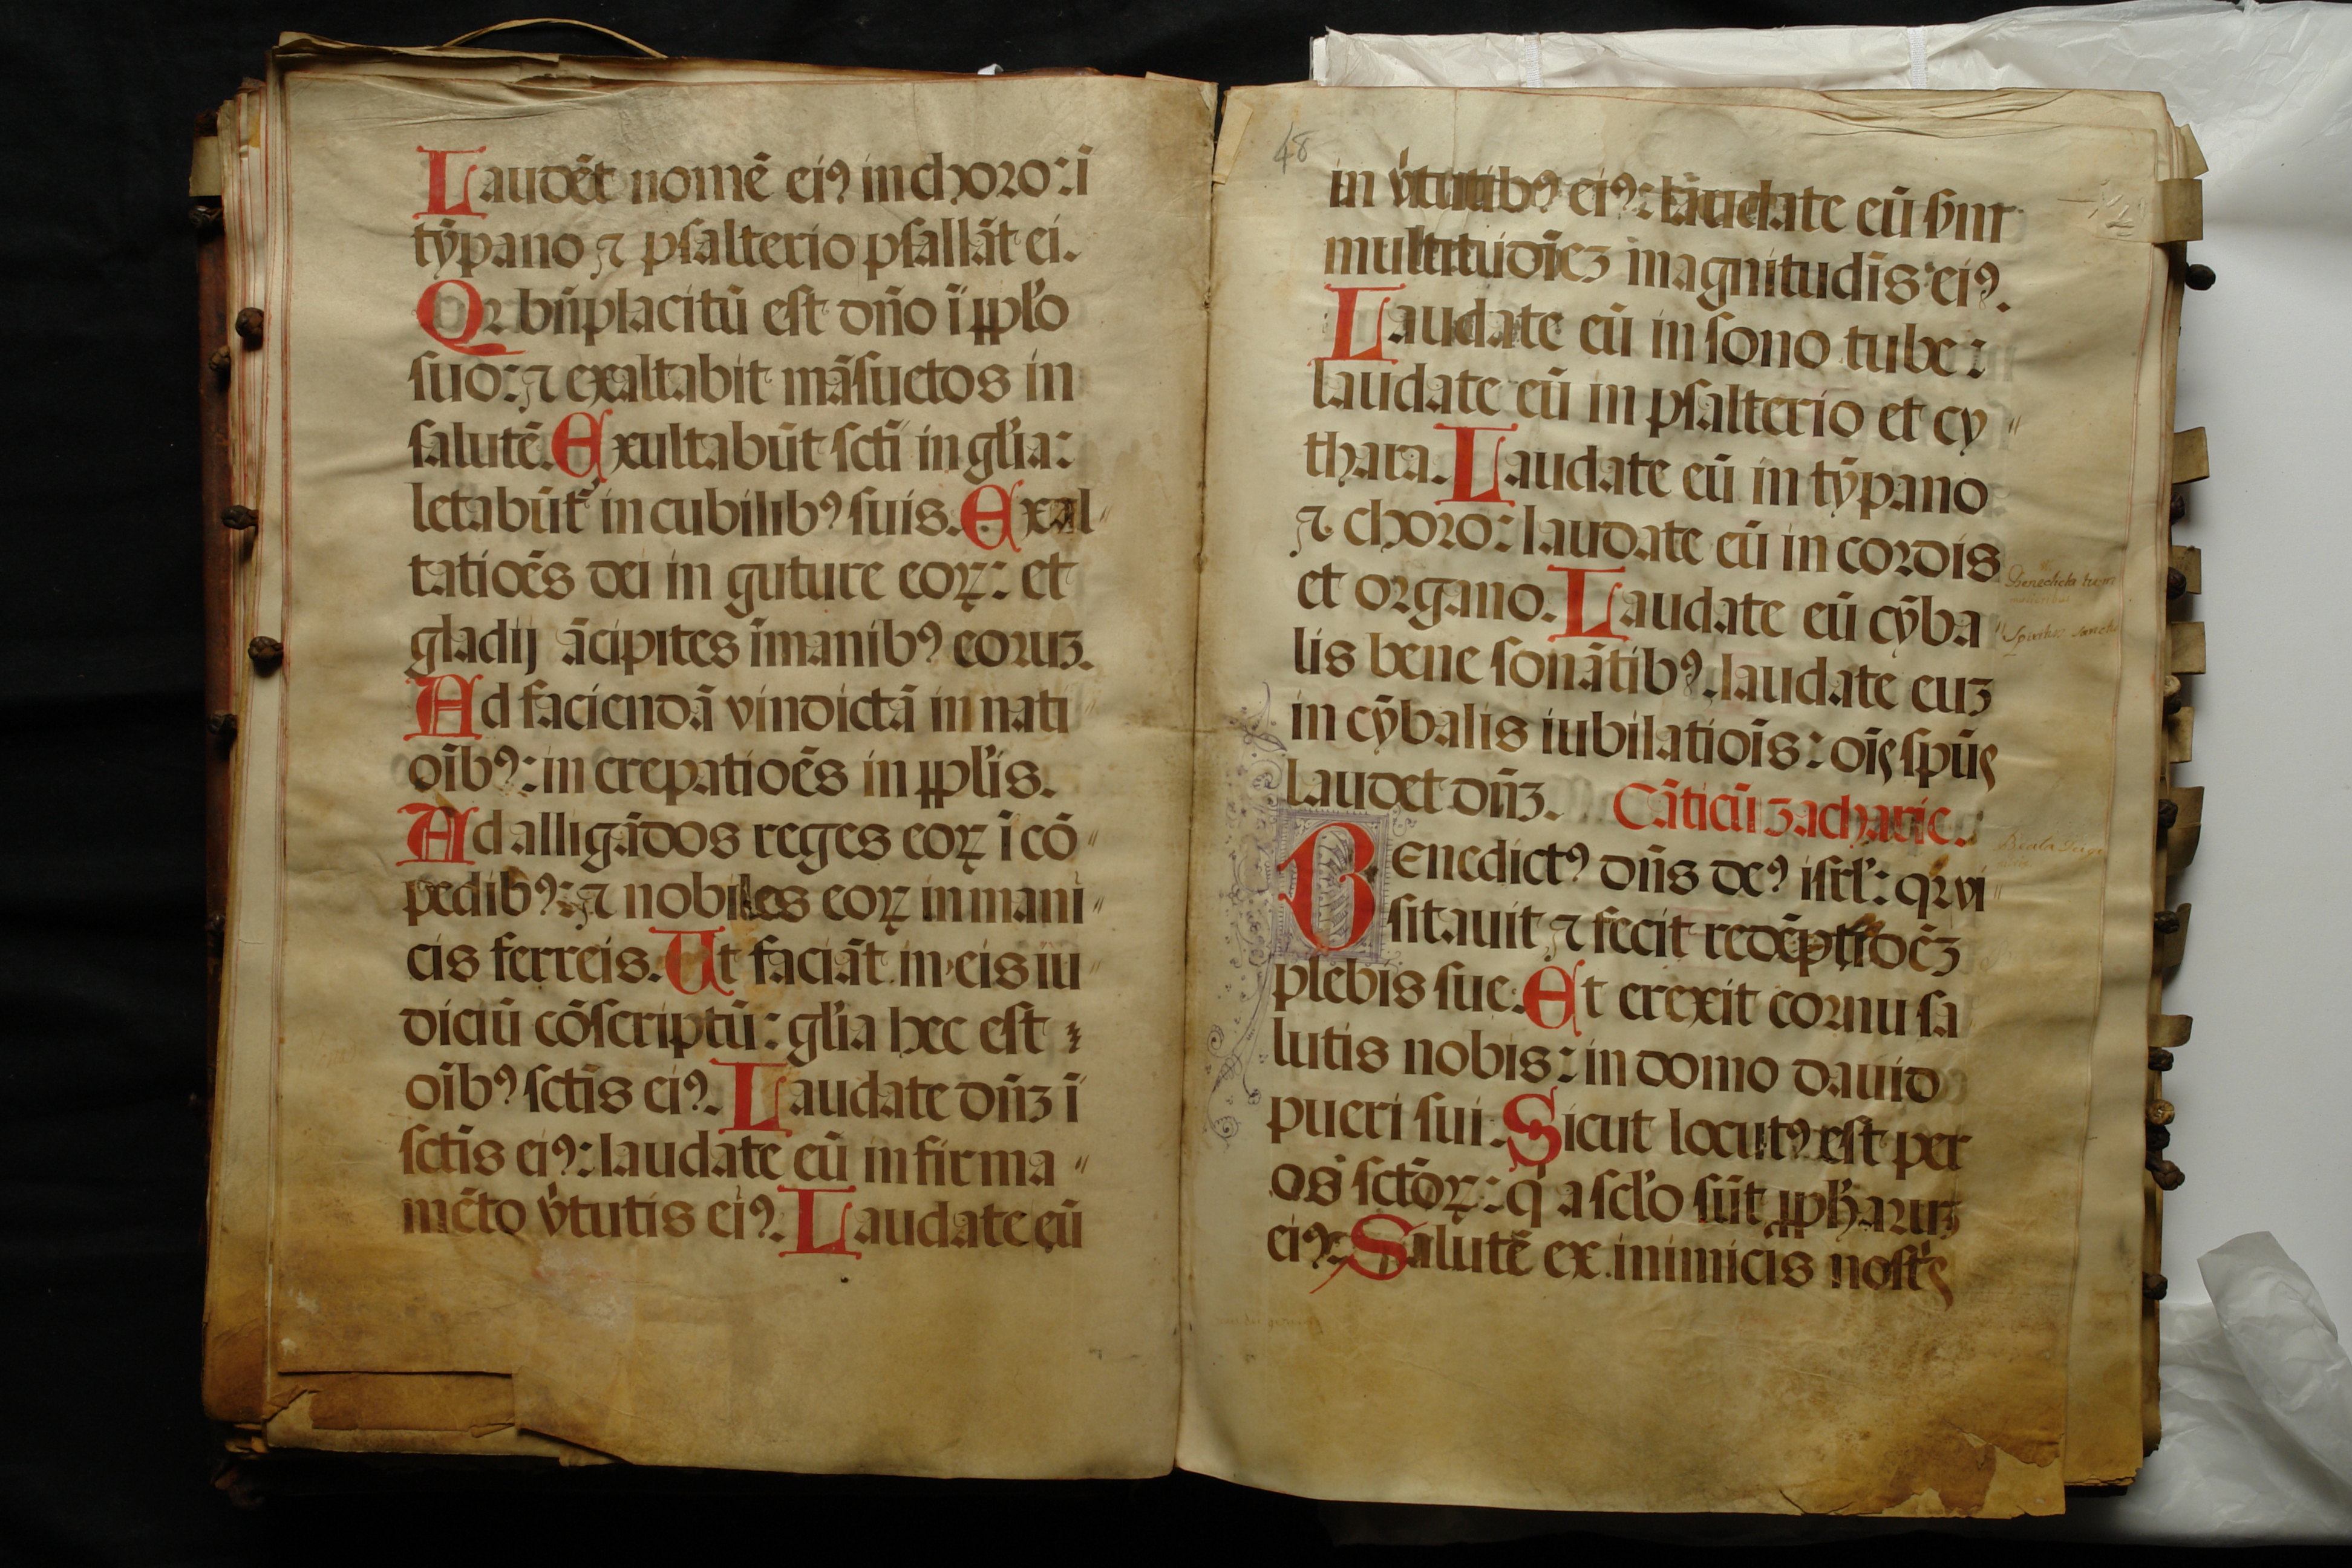 Laudēt nomē eiꝰ in choro: ī
tȳpano ⁊ psalterio psallāt ei.
Qꝛ bn̄placitū est dn̄o ī pplo
suo: ⁊ exaltabit māsuetos in
salutē. Exultabūt scti in glia:
letabūt᷑ in cubilibꝰ suis. Exal″
tatioēs dei in guture eoꝝ: et
gladij ācipites ī manibꝰ eoruꝫ.
Ad faciendā vindictā in nati″
oībꝰ: in crepatioēs in pplis.
Ad alligādos reges eoꝝ ī cō″
pedibꝰ: ⁊ nobiles eoꝝ in mani″
cis ferreis. Ut faciāt in eis iu″
diciū cōscriptū: glia hec est
oībꝰ sctīs eiꝰ. Laudate dn̄ꝫ ī
sctīs eiꝰ: laudate eū in firma″
mēto v̓tutis eiꝰ. Laudate eū
48
in v̓tutibꝰ eiꝰ: laudate eū s̄m
multitudīeꝫ magnitudīs eiꝰ.
Laudate eū in sono tube:
laudate eū in psalterio et cy″
thara. Laudate eū in tȳpano
⁊ choro: laudate eū in cordis
et organo. Laudate eū cȳba″
lis bene sonātibꝰ. laudate euꝫ
in cȳbalis iubilatioīs: oīs spūs
laudet dn̄ꝫ. Cāticū zacharie.
Benedictꝰ dn̄s deꝰ isrl: qꝛ vi″
sitauit ⁊ fecit redēptioēꝫ
plebis sue. Et erexit cornu sa
lutis nobis: in domo dauid
pueri sui. Sicut locutꝰ est per
os sctōꝝ: q̓ a sclo sūt ppharuꝫ
eiꝰ: Salutē ex inimicis nost̓s
Benedicta tu in
mulieribus
Spiritus sancto
Beata Virgo